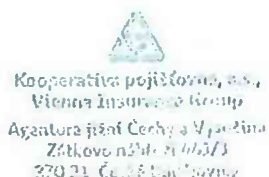 Kooperativa pojišťovna, a.s.,
Vienna Insurance Group
Agentura jižní Čechy a Vysočina
Žižkovo nám.
370 21 České Budějovice